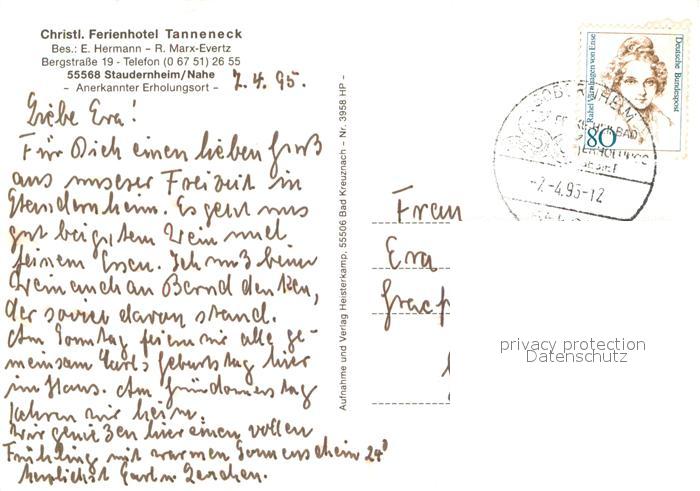 Christl. Ferienhotel Tanneneck
Bes.: E. Hermann – R. Marx-Evertz
Bergstraße 19 - Telefon (0 67 51) 26 55
55568 Staudernheim/Nahe
– Anerkannter Erholungsort –
7.4.95.
Liebe Eva!
Für Dich einen lieben Gruß
aus unserer Freizeit in
Staudernheim. Es geht uns
gut bei gutem Wein und
feinem Essen. Ich muß beim
Wein auch an Bernd denken,
der soviel davon stand.
Am Sonntag feiern wir alle ge-
meinsam Karls Geburtstag hier
im Haus. Am Gründonnerstag
fahren wir heim.
Wir genießen hier einen vollen
Frühling mit warmem Sonnenschein 24°
Herzlichst
Aufnahme und Verlag Heisterkamp, 55506 Bad Kreuznach – Nr. 3958 HP –
Frau
Eva
Rahel Varnhagen von Ense
Deutsche Bundespost
80
SOBERNHEIM
-7.-4.95-12
privacy protection
Datenschutz